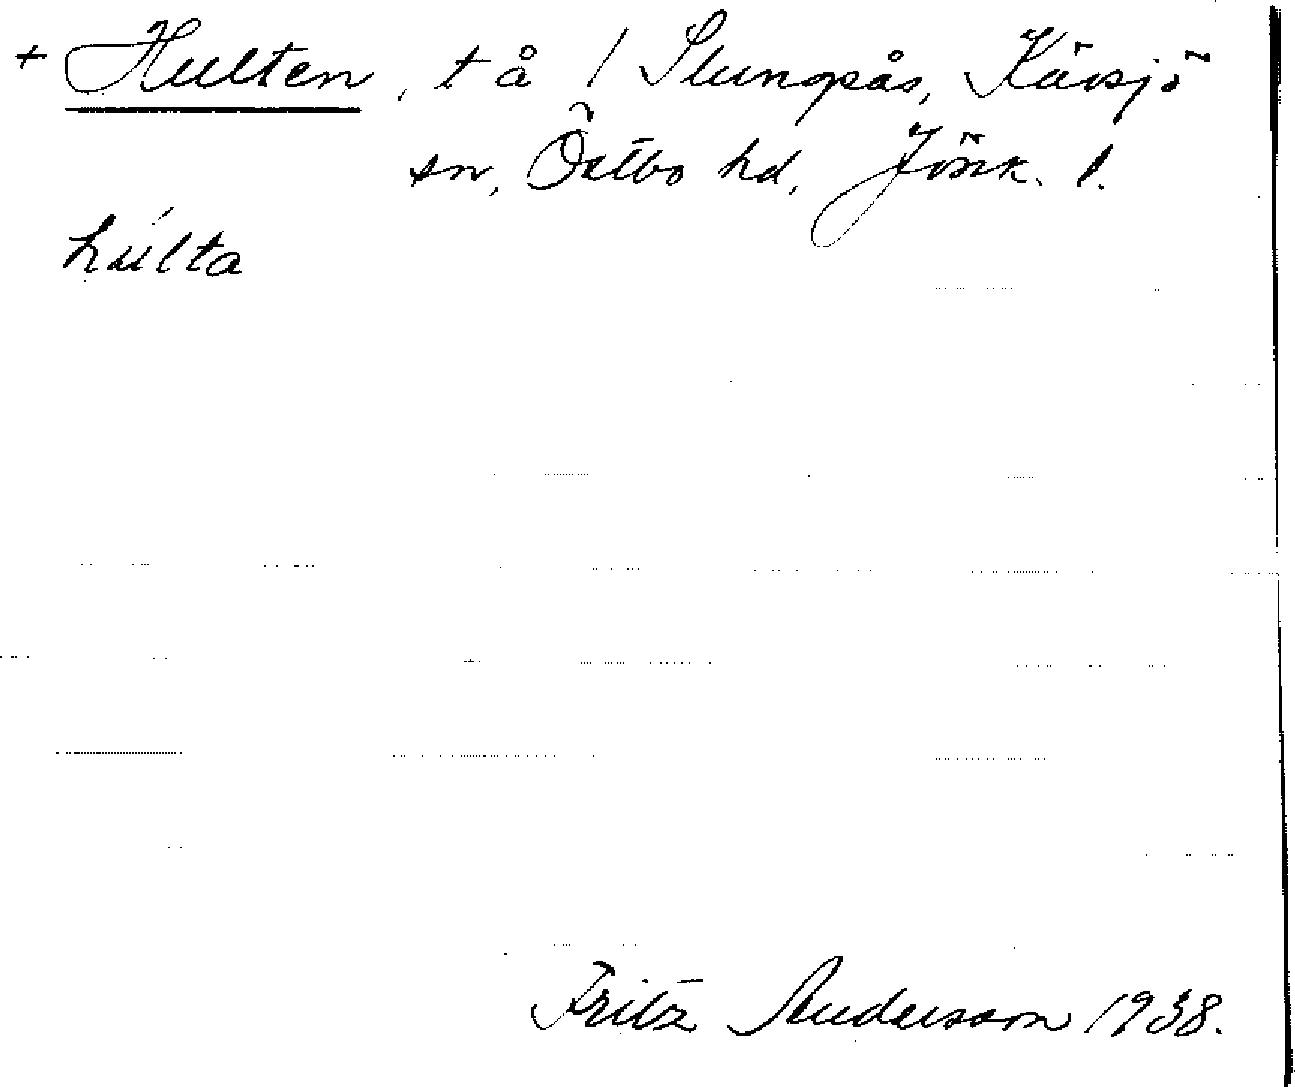 + Hulten, t å / Slungsås, Kävsjö
sn, Östbo hd, Jönk. l.
húlta
Fritz Andersson 1938.